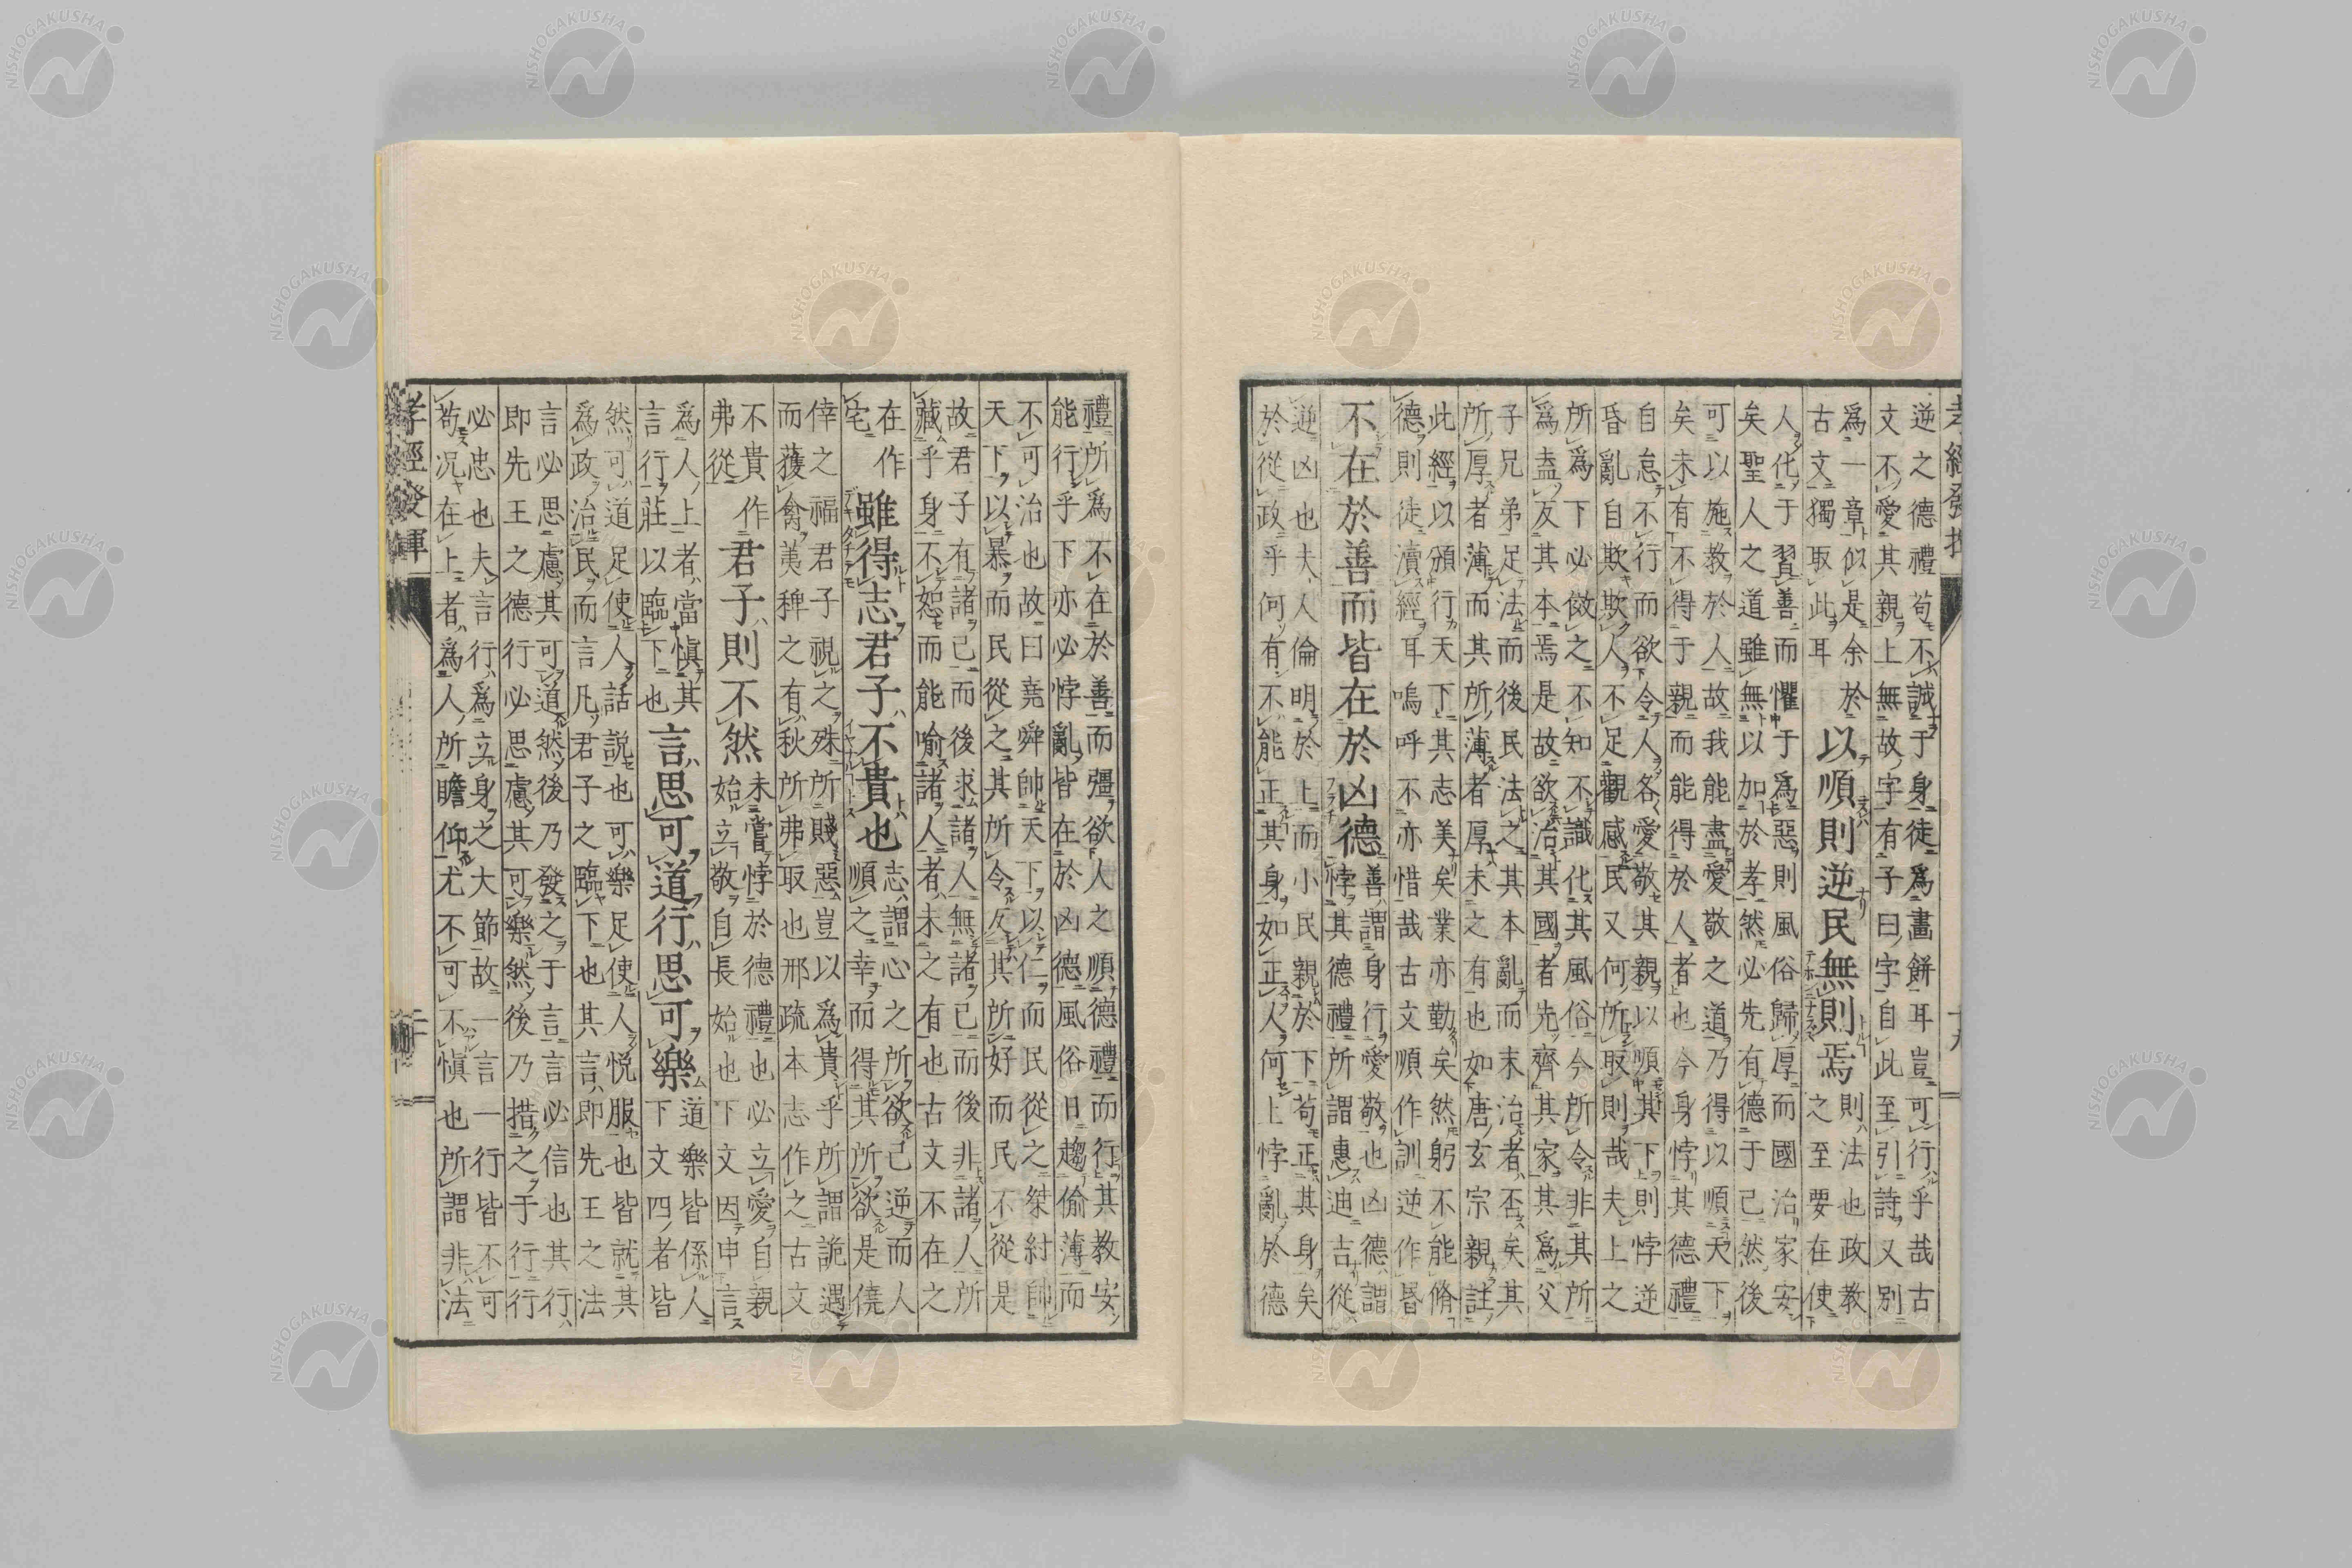 孝經發揮 十九
逆之德禮苟不誠于身徒爲畫餅耳豈可行乎哉古
文不愛其親上無故字有子曰字自此至引詩又別
爲一章似是余於
古文獨取此耳
以順則逆民無則焉
則法也政教
之至要在使
人化于習善而懼于爲惡則風俗歸厚而國治家安
矣聖人之道雖無以加於孝然必先有德于己然後
可以施教於人故我能盡愛敬之道乃得以順天下
矣未有不得于親而能得於人者也今身悖其德禮
自怠不行而欲令人各愛敬其親以順其下則悖逆
昏亂自欺欺人不足觀感民又何所取則哉夫上之
所爲下必傚之不知不識化其風俗今所令非其所
爲盍友其本焉是故欲治其國者先齊其家其爲父
子兄弟足法而後民法之其本亂而末治者否矣其
所厚者薄而其所薄者厚未之有也如唐玄宗親註
此經以頒行天下其志美矣業亦勤矣然躬不能脩
德則徒瀆經耳嗚呼不亦惜哉古文順作訓逆作昏
不在於善而皆在於凶德
善謂身行愛敬也凶德謂
悖其德禮所謂惠迪吉從
逆凶也夫人倫明於上而小民親於下苟正其身矣
於從政乎何有不能正其身如正人何上悖亂於德
禮所爲不在於善而彊欲人之順德禮而行其教安
能行乎下亦必悖亂皆在於凶德風俗日趨偷薄而
不可治也故曰堯舜帥天下以仁而民從之桀紂帥
天下以暴而民從之其所令反其所好而民不從是
故君子有諸己而後求諸人無諸己而後非諸人所
藏乎身不恕而能喻諸人者未之有也古文不在之
在作
宅
雖得志君子不貴也
志謂心之所欲己逆而人
順之幸而得其所欲是僥
倖之福君子視之殊所賤惡豈以爲貴乎所謂詭遇
而獲禽美稗之有秋所弗取也邢疏本志作之古文
不貴作
弗從
君子則不然
未嘗悖於德禮也必立愛自親
始立敬自長始也下文因申言
爲人上者當愼其
言行莊以臨下也
言思可道行思可樂
道樂皆係人
下文四者皆
然可道足使人話說也可樂足使人悅服也皆就其
爲政治民而言凡君子之臨下也其言即先王之法
言必思慮其可道然後乃發之于言言必信也其行
即先王之德行必思慮其可樂然後乃措之于行行
必忠也夫言行爲立身之大節故一言一行皆不可
苟況在上者爲人所瞻仰尤不可不愼也所謂非法
孝經發揮 二十
NISHOGAKUSHA